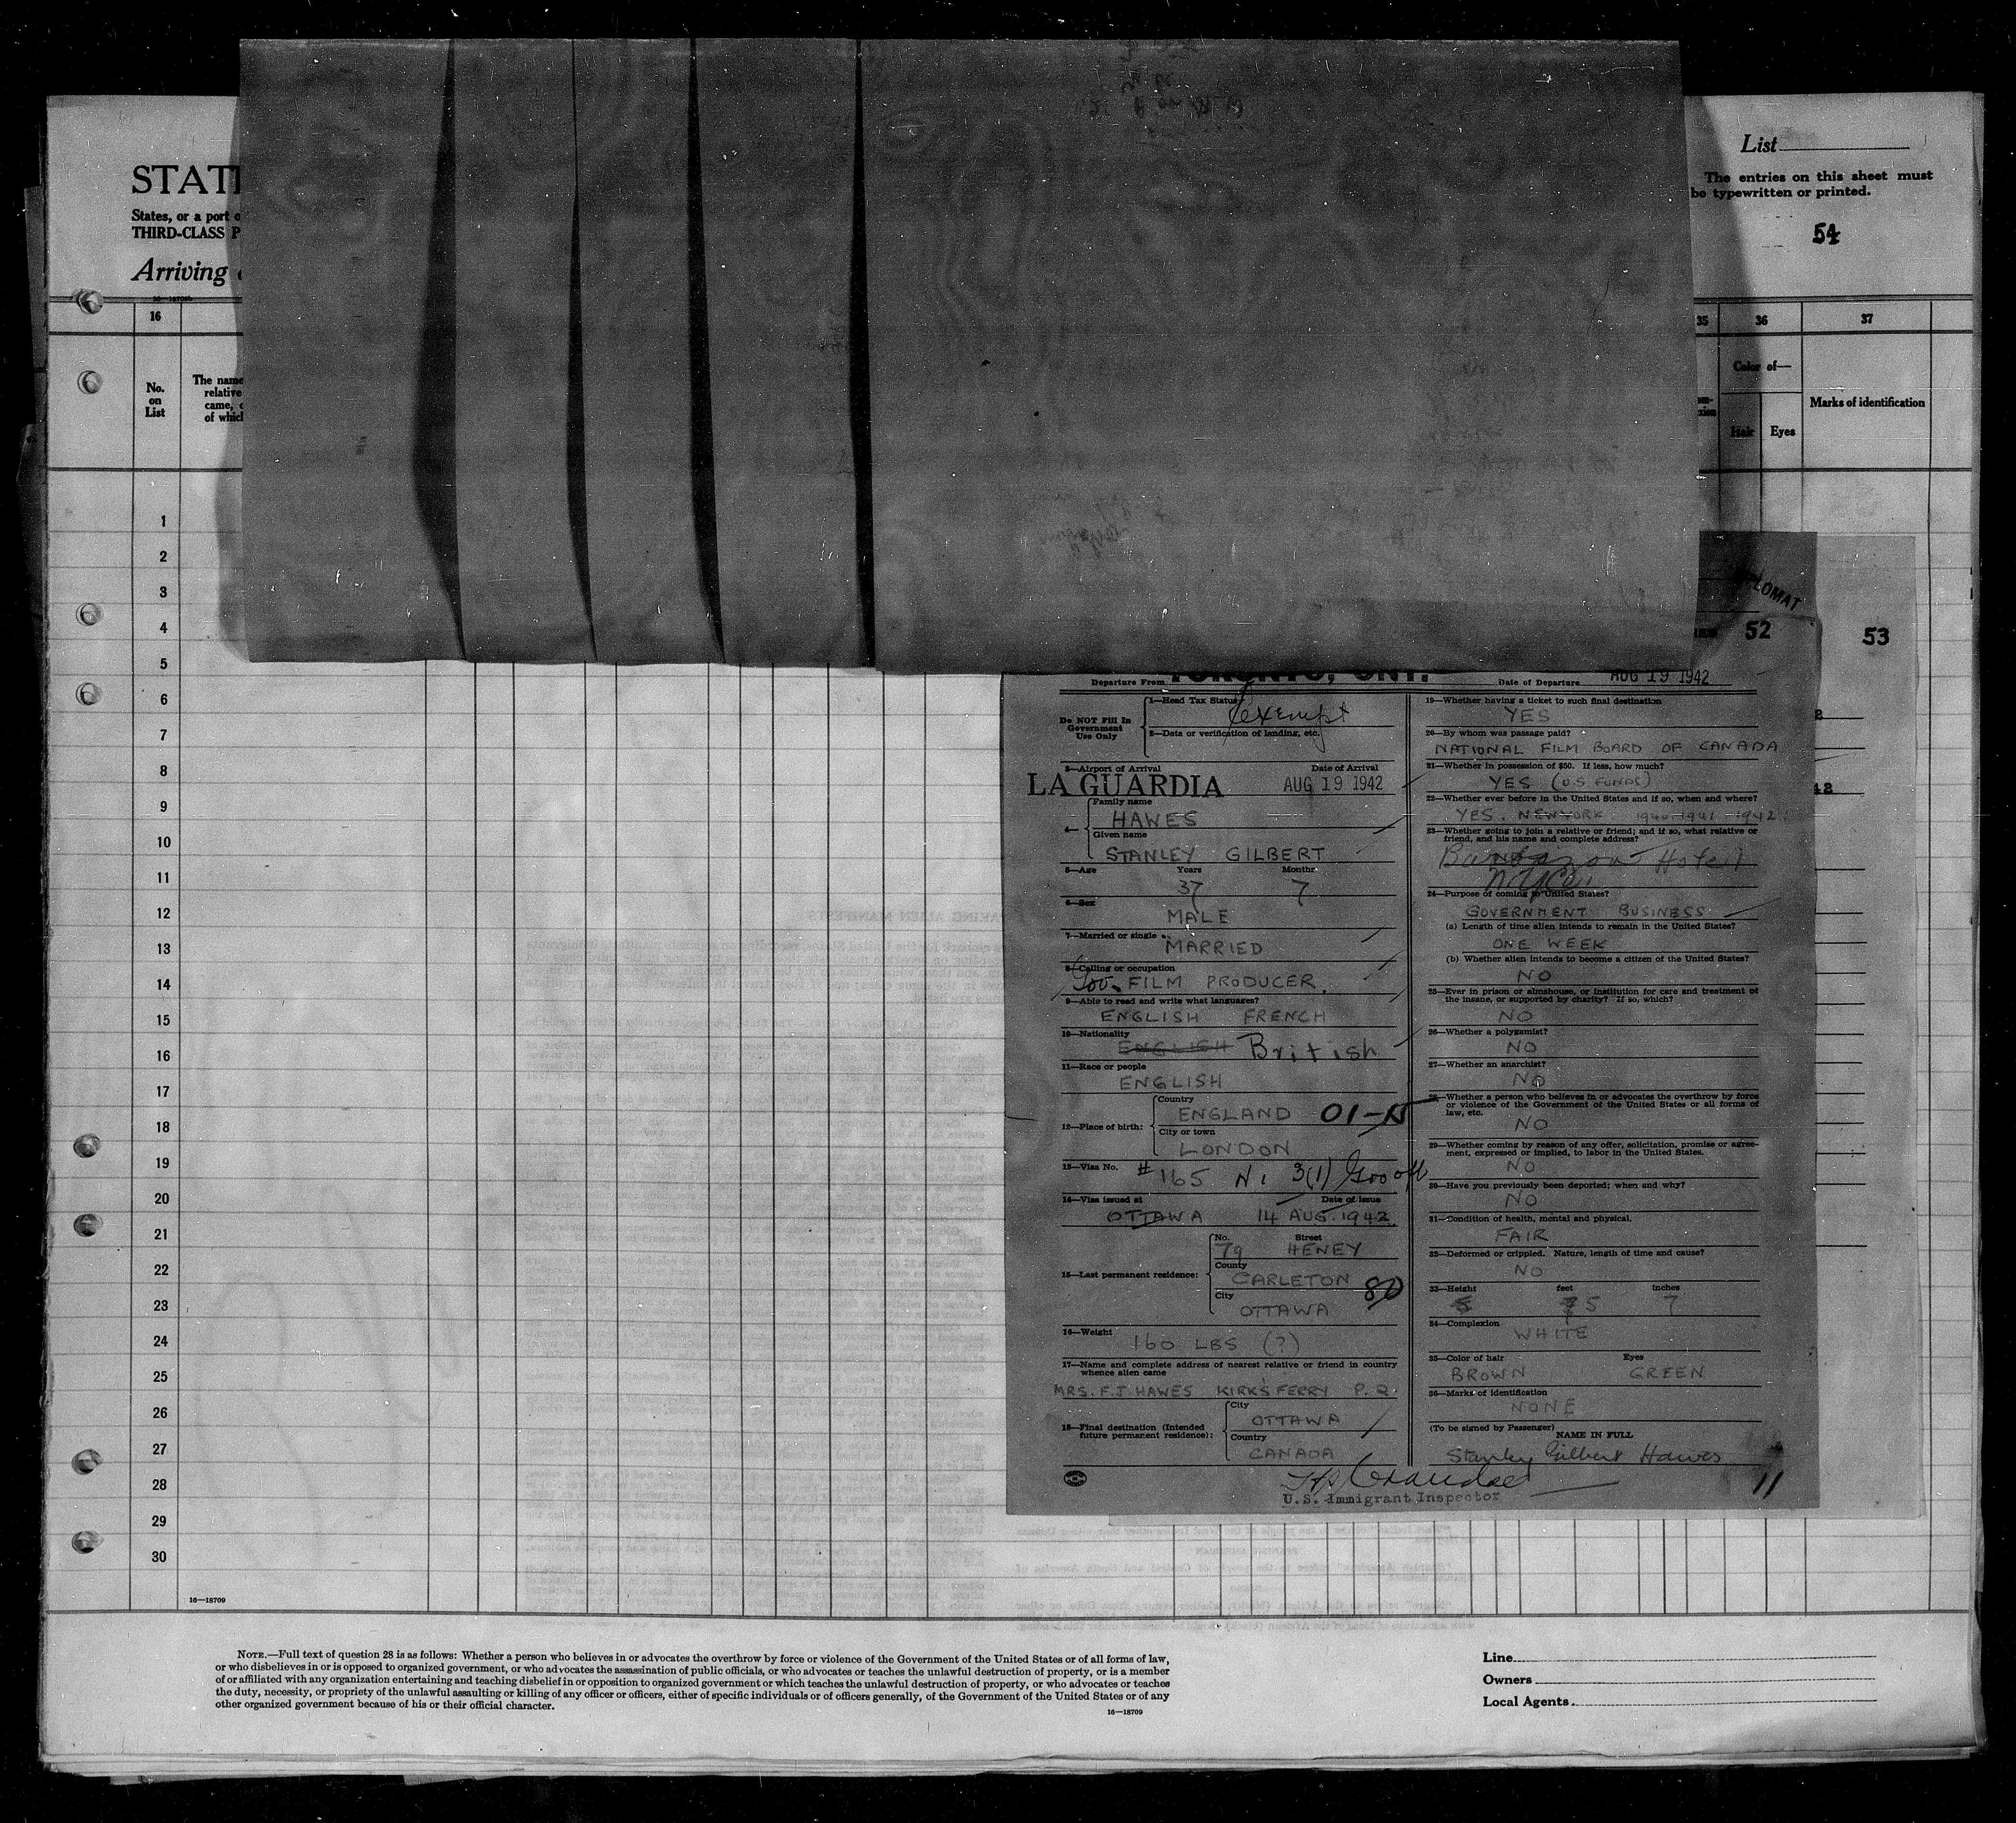 List
The entries on this sheet must
be typewritten or printed.
54
States, or a port
THIRD-CLASS
Arriving
16
35 36 37
No.
on
List
The name
relative
came,
of which
Color of—
Hair Eyes
Marks of identification
1
2
3
4
5
6
7
8
9
10
11
12
13
14
15
16
17
18
19
20
21
22
23
24
25
26
27
28
29
30
16—18709
52
53
Departure From TORONTO, ONT.
Date of Departure AUG 19 1942
Do NOT Fill In
Government
Use Only
1—Head Tax Status
exempt
2—Data or verification of landing, etc.
3—Airport of Arrival Date of Arrival
LA GUARDIA AUG 19 1942
4—
Family name
HAWES
Given name
STANLEY GILBERT
5—Age Years Months
37 7
6—Sex
MALE
7—Married or single
MARRIED
8—Calling or occupation
Gov. FILM PRODUCER.
9—Able to read and write what languages?
ENGLISH FRENCH
10—Nationality
ENGLISH British
11—Race or people
ENGLISH
12—Place of birth:
Country
ENGLAND
City or town
LONDON
13—Visa No. # 165 3(1)
14—Visa issued at Date of issue
OTTAWA 14 AUG. 1942
15—Last permanent residence:
No. Street
79 HENEY
County
CARLETON 80
City
OTTAWA
16—Weight
160 LBS (?)
17—Name and complete address of nearest relative or friend in country
whence alien came
MRS. F.J. HAWES KIRK'S FERRY P.Q.
18—Final destination (Intended
future permanent residence):
City
OTTAWA
Country
CANADA
U.S. Immigrant Inspector
19—Whether having a ticket to such final destination
YES
20—By whom was passage paid?
NATIONAL FILM BOARD OF CANADA
21—Whether in possession of $50. If less, how much?
YES (U.S FUNDS)
22—Whether ever before in the United States and if so, when and where?
YES. NEW YORK 1940-1941-1942
23—Whether going to join a relative or friend; and if so, what relative or
friend, and his name and complete address?
Hotel
24—Purpose of coming to United States?
GOVERNMENT BUSINESS
(a) Length of time alien intends to remain in the United States?
ONE WEEK
(b) Whether alien intends to become a citizen of the United States?
NO
25—Ever in prison or almshouse, or institution for care and treatment of
the insane, or supported by charity? If so, which?
NO
26—Whether a polygamist?
NO
27—Whether an anarchist?
NO
28—Whether a person who believes in or advocates the overthrow by force
or violence of the Government of the United States or all forms of
law, etc.
NO
29—Whether coming by reason of any offer, solicitation, promise or agree-
ment, expressed or implied, to labor in the United States.
NO
30—Have you previously been deported; when and why?
NO
31—Condition of health, mental and physical.
FAIR
32—Deformed or crippled. Nature, length of time and cause?
NO
33—Height feet inches
5 7
34—Complexion
WHITE
35—Color of hair Eyes
BROWN GREEN
36—Marks of identification
NONE
(To be signed by Passenger)
NAME IN FULL
Stanley Gilbert Hawes
11
NOTE.—Full text of question 28 is as follows: Whether a person who believes in or advocates the overthrow by force or violence of the Government of the United States or of all forms of law,
or who disbelieves in or is opposed to organized government, or who advocates the assassination of public officials, or who advocates or teaches the unlawful destruction of property, or is a member
of or affiliated with any organization entertaining and teaching disbelief in or opposition to organized government or which teaches the unlawful destruction of property, or who advocates or teaches
the duty, necessity, or propriety of the unlawful assaulting or killing of any officer or officers, either of specific individuals or of officers generally, of the Government of the United States or of any
other organized government because of his or their official character.
16—18709
Line
Owners
Local Agents